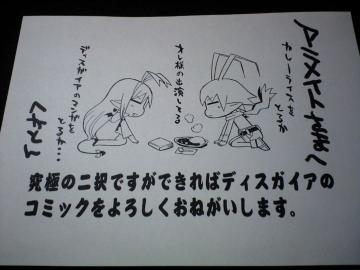 カレーライスを
とるか
オレ様の出演してる
ディスガイアのマンガを
とるか…
究極の二択ですができればディスガイアの
コミックをよろしくおねがいします。